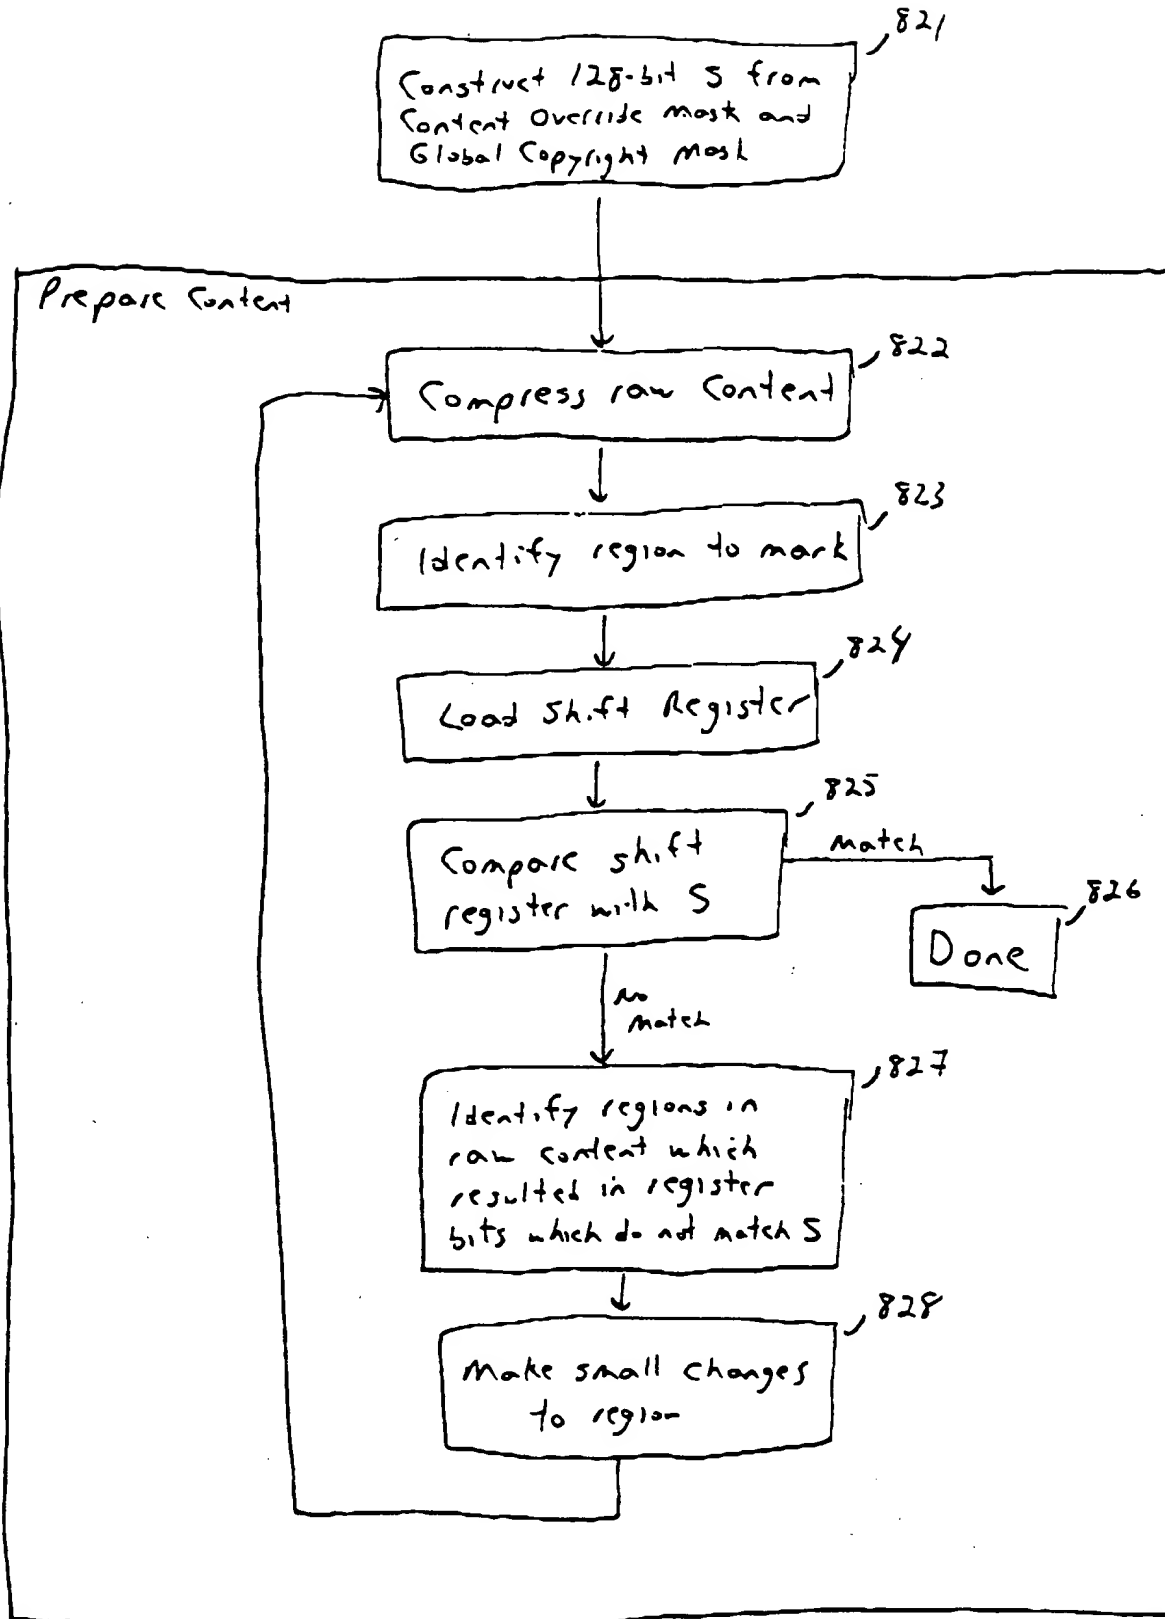 821
Construct 128-bit S from
Content Override Mask and
Global Copyright Mask
Prepare Content
822
Compress raw Content
823
Identify region to mark
824
Load Shift Register
825
Compare shift
register with S
Match
826
Done
No
Match
827
Identify regions in
raw content which
resulted in register
bits which do not match S
828
Make small changes
to region